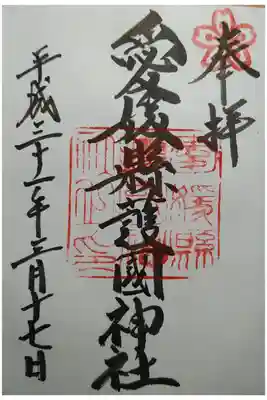 奉拝
愛媛縣護國神社
平成二十一年三月十七日